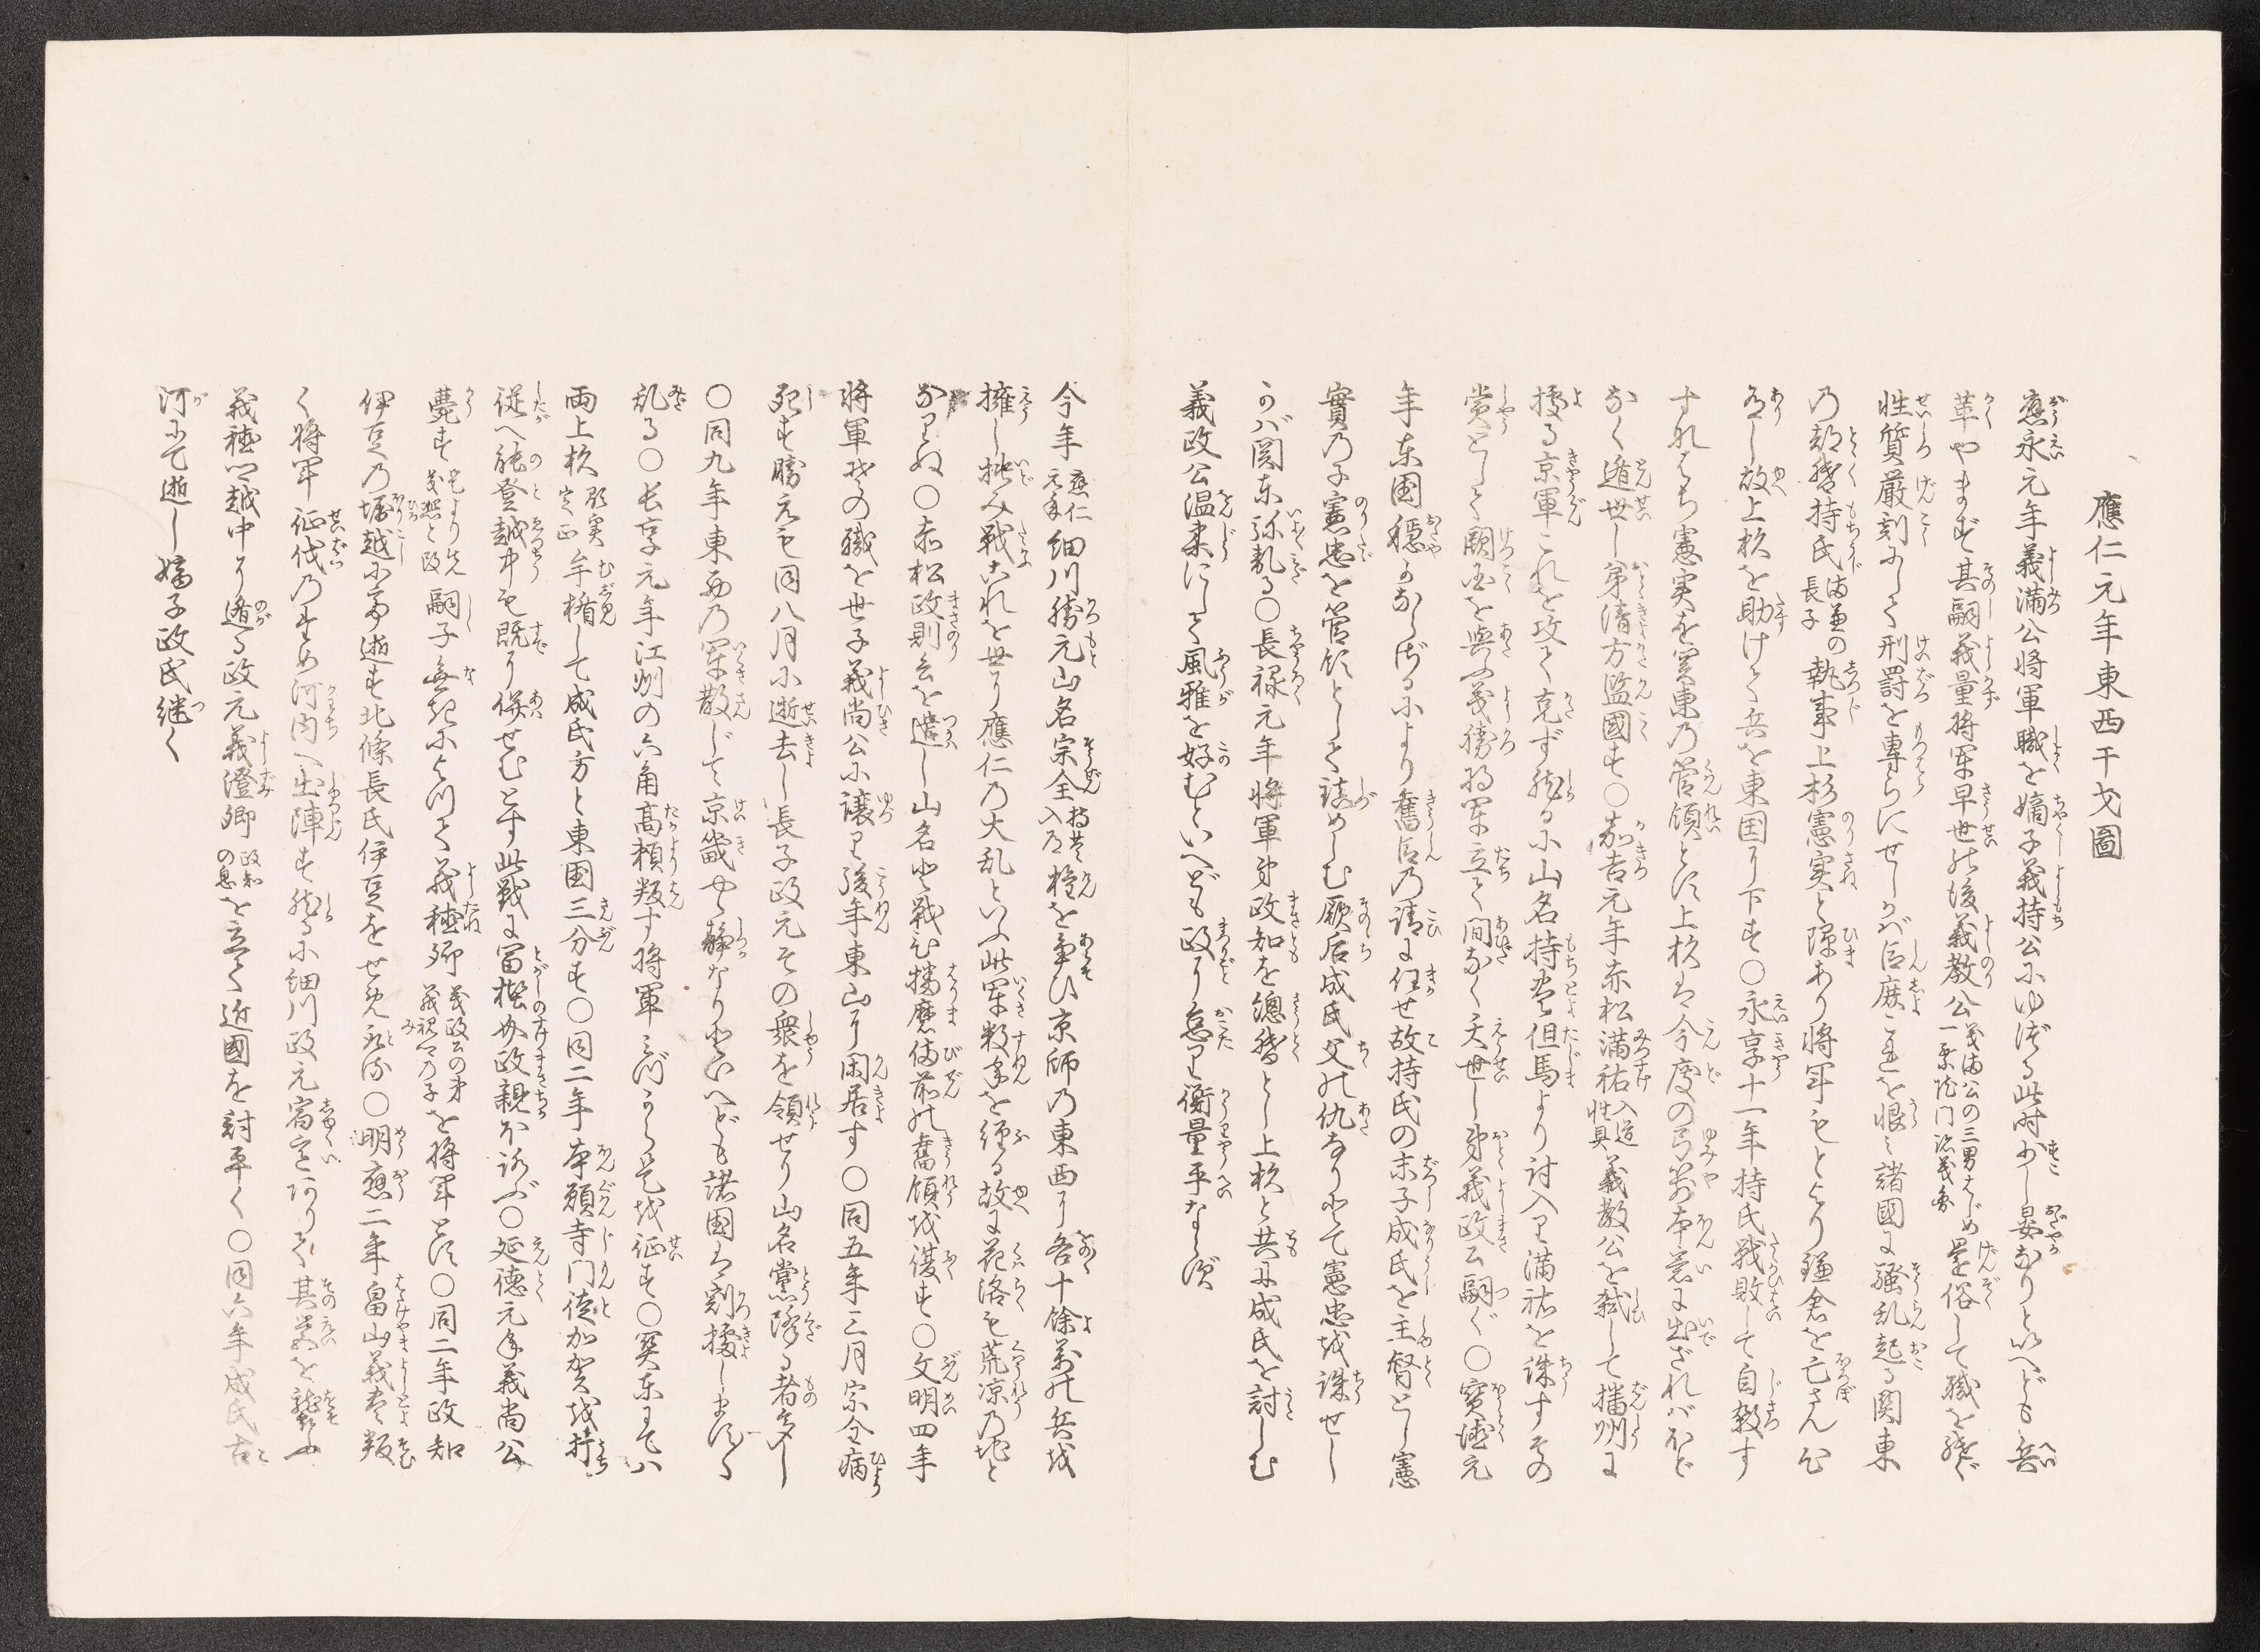 應仁元年東西干戈圖
應永元年義満公将軍職を嫡子義持公にゆづる此時少し晏なりといへども兵
革やまず其嗣義量将軍早世の後義教公義満公の三男はじめ青蓮院門跡義圓還俗して職を継ぐ
性質厳刻にして刑罰を専らにせしかバ臣庶これを恨ミ諸國に騒乱起る関東
の都督持氏満兼の長子執事上杉憲実と隙あり将軍もとより鎌倉を亡さん心
あり故上杉を助けて兵を東国に下す〇永享十一年持氏戦敗して自殺す
すなハち憲実を関東の管領とす上杉は今度の弓箭本意に出ざれバほど
なく遁世し弟清方監國す〇嘉吉元年赤松満祐入道性具義教公を弑して播州に
據る京軍これを攻て克ず然るに山名持豊但馬より討入り満祐を誅すその
賞として闕国を與ふ義勝将軍立て間なく夭世し弟義政公嗣ぐ〇寶徳元
年東国穏かならざるにより舊臣乃請に任せ故持氏の末子成氏を主督とし憲
實乃子憲忠を管領として鎮めしむ厥后成氏父の仇なりとて憲忠を誅せし
かバ関東弥乱る〇長禄元年将軍弟政知を總督とし上杉と共に成氏を討しむ
義政公温柔にして風雅を好むといへども政に怠り衡量平ならず
今年應仁元年細川勝元山名宗全持豊入道権を争ひ京師の東西に各十餘萬の兵を
擁し挑み戦ふこれを世に應仁の大乱といふ此軍数年を経る故に花洛も荒凉の地と
なりぬ〇赤松政則兵を遣し山名と戦ひ播磨備前の舊領を復す〇文明四年
将軍その職を世子義尚公に譲り後年東山に閑居す〇同五年三月宗全病
死す勝元も同八月に逝去し長子政元その衆を領せり山名黨降る者多し
〇同九年東西の軍散じて京畿やゝ静なりといへども諸國は割據しますます
乱る〇長享元年江州の六角高頼叛す将軍ミづから是を征す〇関東にてハ
両上杉顕実定正牟楯して成氏方と東国三分す〇同二年本願寺門徒加賀を持
従へ能登越中も既に併せむとす此戦に冨樫介政親ほろぶ〇延徳元年義尚公
薨ず是より先義煕と改嗣子無きによつて義稙卿義政公の弟義視公の子を将軍とす〇同二年政知
伊豆の堀越に於て逝す北條長氏伊豆をせめとる〇明應二年畠山義豊叛
く将軍征伐のため河内へ出陣す然るに細川政元宿意ありて其営を襲ふ
義稙公越中に遁る政元義澄卿政知の息を立て近國を討平く〇同六年成氏古
河にて逝し嫡子政氏継く